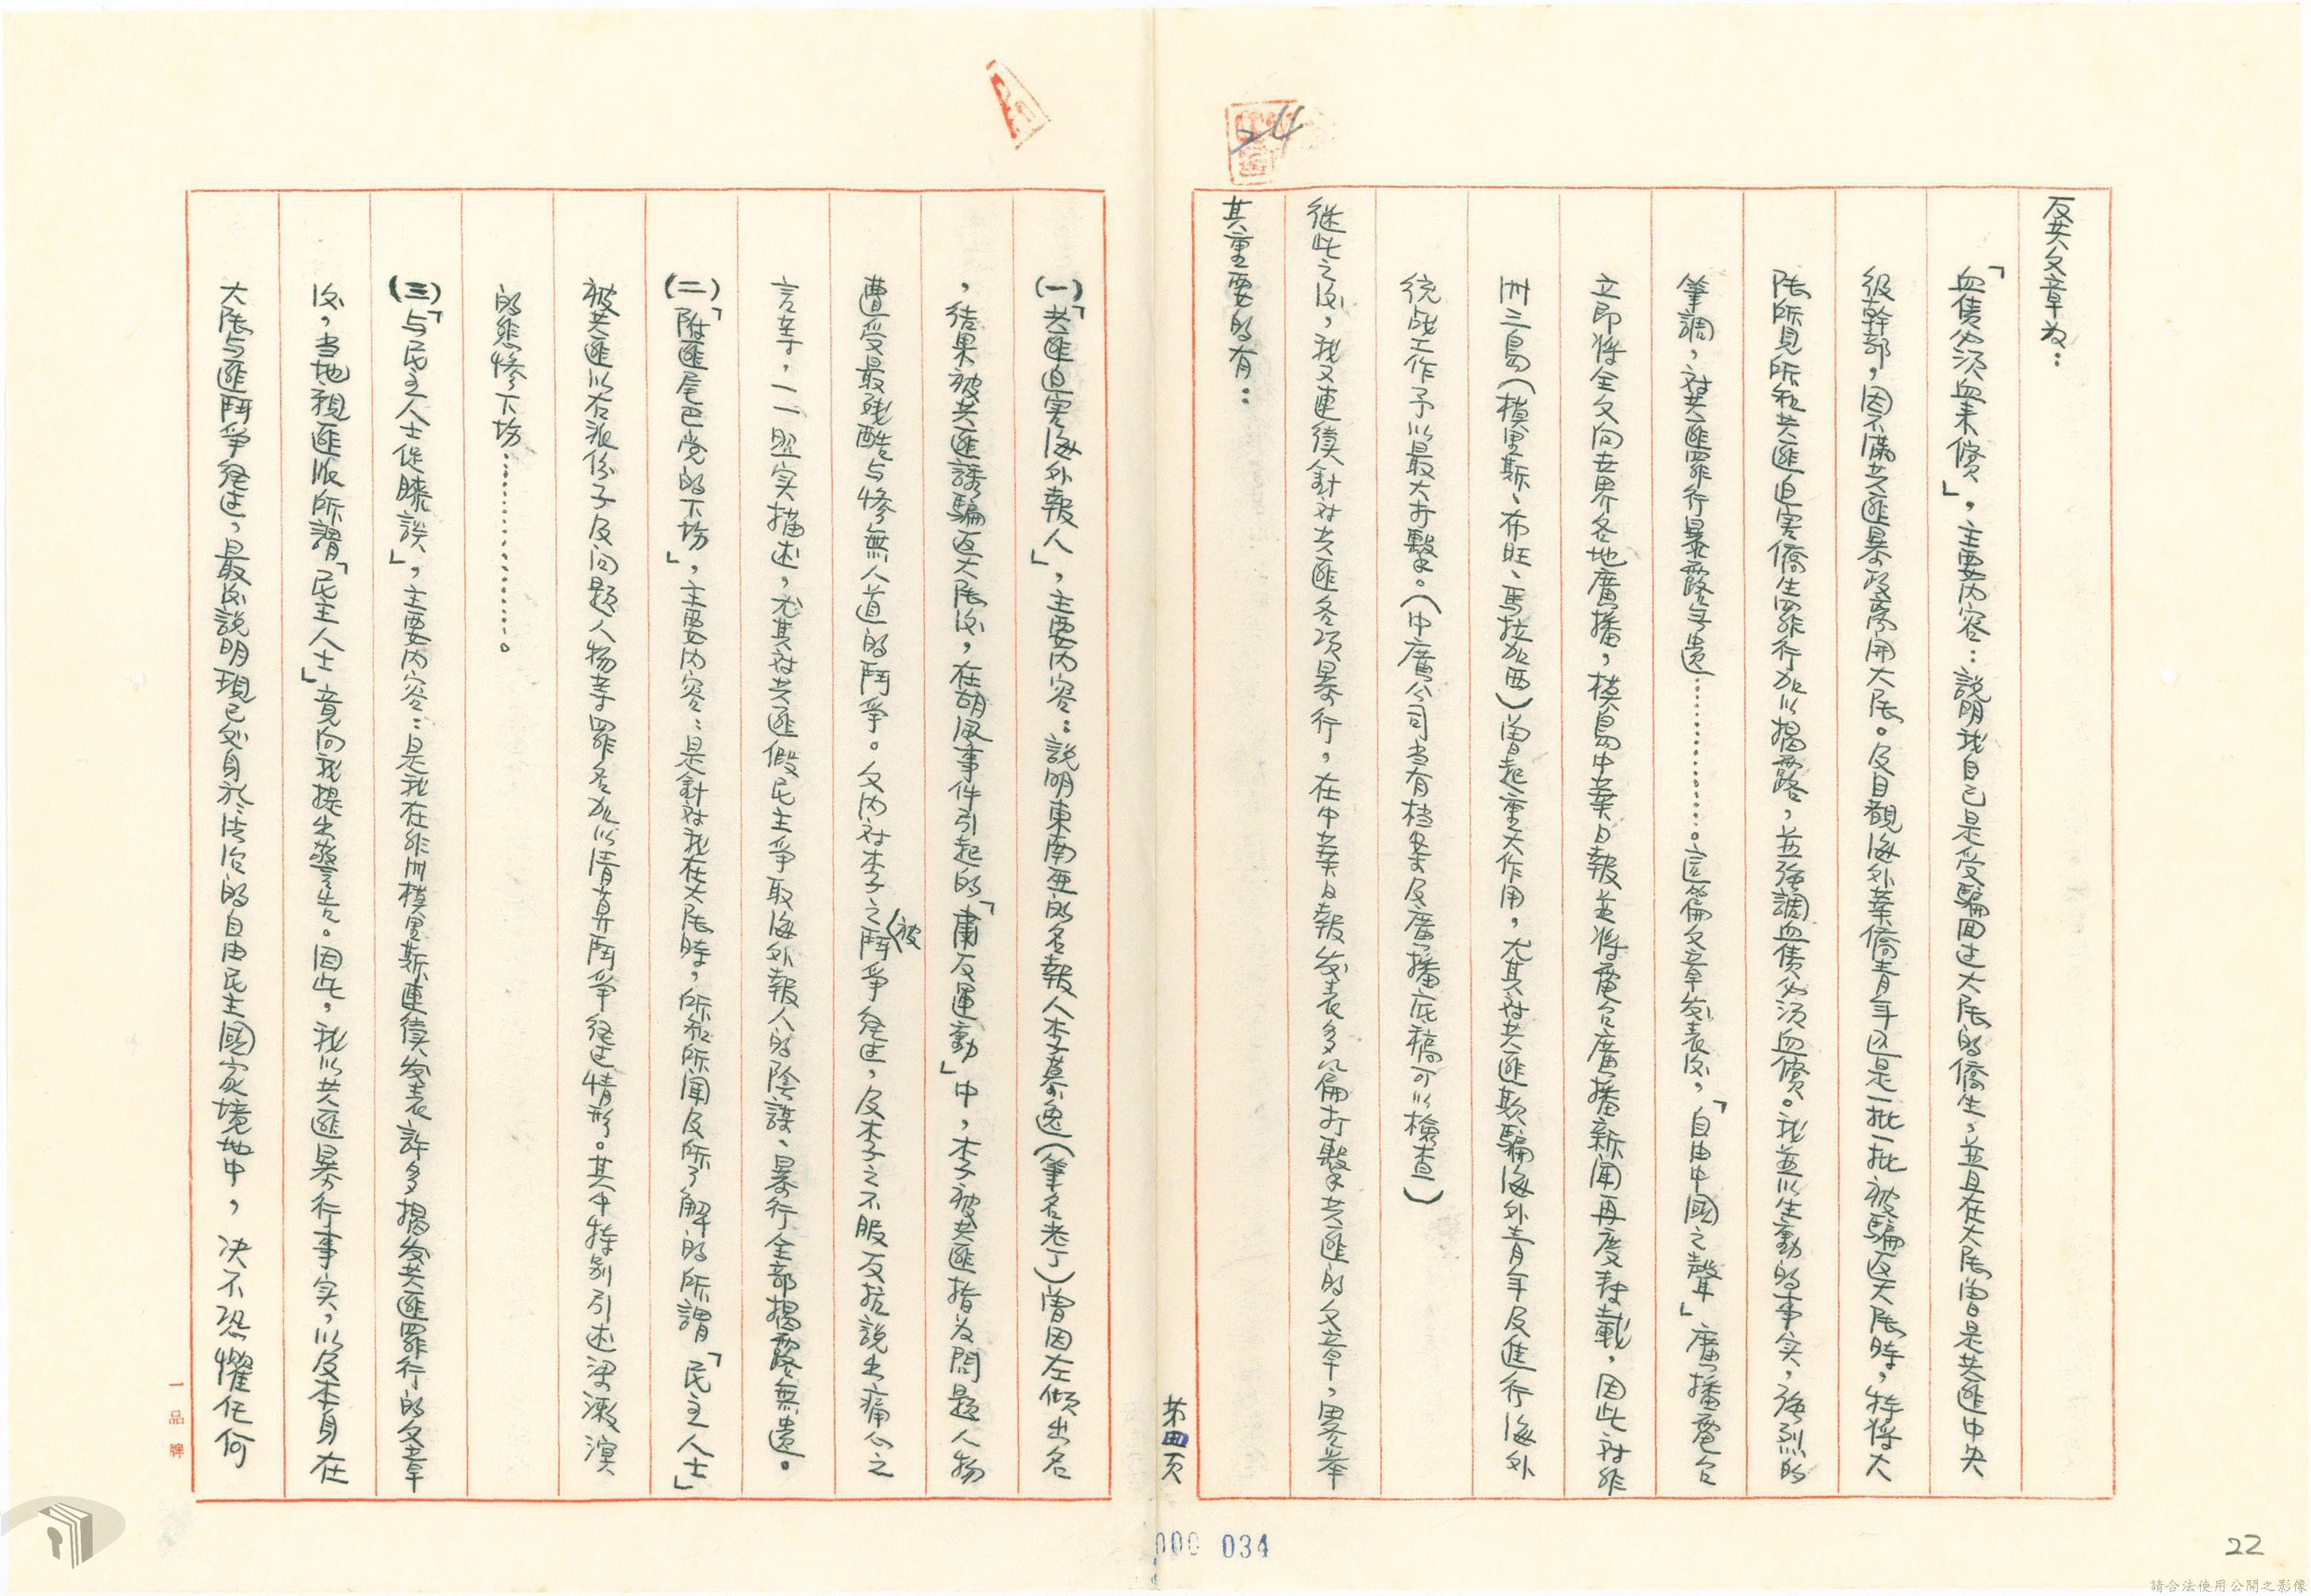 反共文章为：
「血債必須血来償」，主要内容：說明我自己是受騙回过大陸的僑生，並且在大陸曾是共匪中央
级幹部，因不滿共匪暴政离開大陸。及目覩海外華僑青年还是一批一批被騙返大陸時，特將大
陸所見所和共匪迫害僑生罪行加以揭露，並强調血債必須血償。我並以生動的事实，强烈的
筆調，对共匪罪行暴露無遺…………。這篇文章发表後，「自由中國之聲」廣播電台
立即将全文向世界各地廣播，模島中華日報並将電台廣播新聞再度轉載，因此对非
洲三島（模里斯、布旺、馬拉加西）曾起重大作用，尤其对共匪欺騙海外青年及進行海外
統战工作予以最大打擊。（中廣公司当有档案及廣播底稿可以檢查）
继此之後，我又連續針对共匪各項暴行，在中華日報发表多篇打擊共匪的文章，畧举
其重要的有：
第四页
(一)「共匪迫害海外報人」，主要内容：說明東南亜的名報人李慕逸（筆名老丁）曾因左傾出名
，结果被共匪誘騙返大陸後，在胡風事件引起的「肅反運動」中，李被共匪指为問題人物
遭受最残酷与惨無人道的鬥爭。文内对李之被鬥爭经过，及李之不服反抗說出痛心之
言等，一一照实描述，尤其对共匪假民主爭取海外報人的陰謀、暴行全部揭露無遺。
(二)「附匪尾巴党的下场」，主要内容：是針对我在大陸時，所和所闻及所了解的所謂「民主人士」
被共匪以右派份子及问题人物等罪名加以清算鬥爭经过情形。其中特别引述梁漱溟
的悲惨下场…………。
(三)「与民主人士促膝談」，主要内容：是我在非洲模里斯連續发表許多揭发共匪罪行的文章
後，当地親匪派所謂「民主人士」竟向我提出警告。因此，我以共匪暴行事实，以及本身在
大陸与匪鬥爭经过，最後說明現已处身於法治的自由民主國家境地中，决不恐懼任何
一品牌
24
000 034
22
請合法使用公開之影像